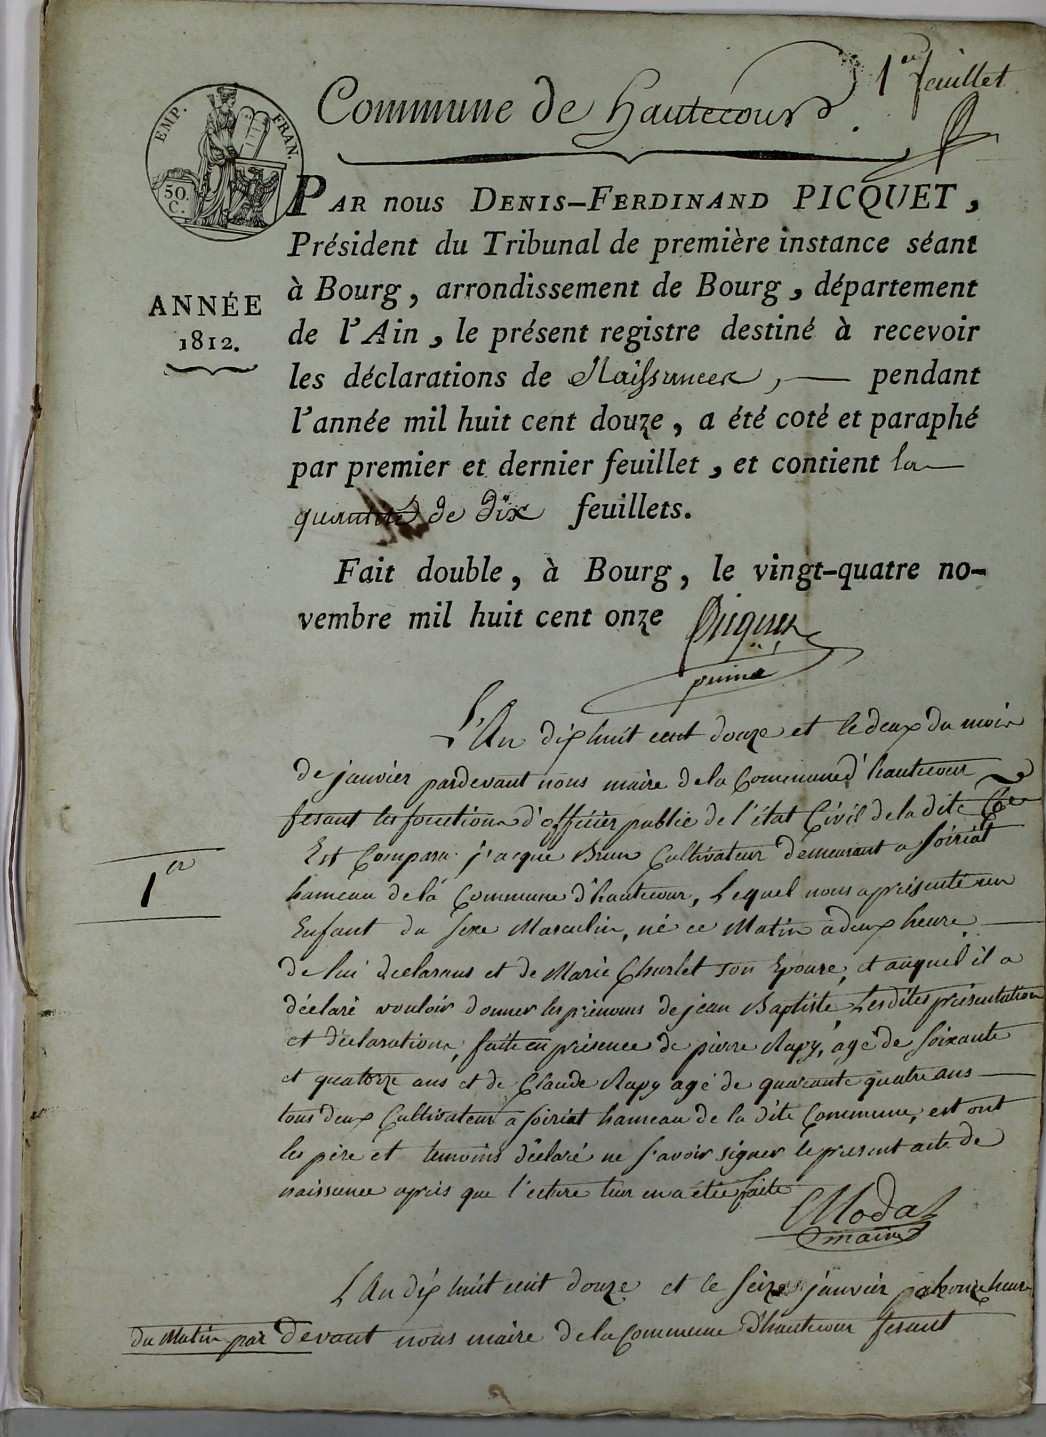 1er feuillet
Commune de hautecour
EMP. FRAN.
50. C.
PAR nous DENIS-FERDINAND PICQUET,
Président du Tribunal de première instance séant
à Bourg, arrondissement de Bourg, département
ANNÉE
1812.
de l'Ain, le présent registre destiné à recevoir
les déclarations de Naissances, — pendant
l'année mil huit cent douze, a été coté et paraphé
par premier et dernier feuillet, et contient la
quantité de dix feuillets.
Fait double, à Bourg, le vingt-quatre no-
vembre mil huit cent onze Picquet
L'An dix huit cent douze et le deux du mois
de janvier pardevant nous maire de la Commune d'hautecour
fesant les fonctions d'officier public de l'état Civil de la dite Cne
1er
Est Comparu jacque Brun Cultivateur demeurant a Soiriat
hameau de la Commune d'hautecour, Lequel nous a présenté un
Enfant du Sexe Masculin, né ce Matin a deux heure
de lui declarans et de Marie Churlet son Epouse, et auquel il a
déclaré vouloir donner les prénoms de jean Baptiste, Les dites présentation
et déclarations, faite en présence de pierre Rapy, agé de Soixante
et quatorze ans et de Claude Rapy agé de quarante quatre ans
tous deux Cultivateur a Soiriat hameau de la dite Commune, est ont
les père et temoins déclaré ne s'avoir signer le present acte de
naissance après que l'ecture leur en a été faite
maire
L'An dix huit cent douze et le Seize janvier a honze heure
du Matin par devant nous maire de la Commune d'hautecour fesant